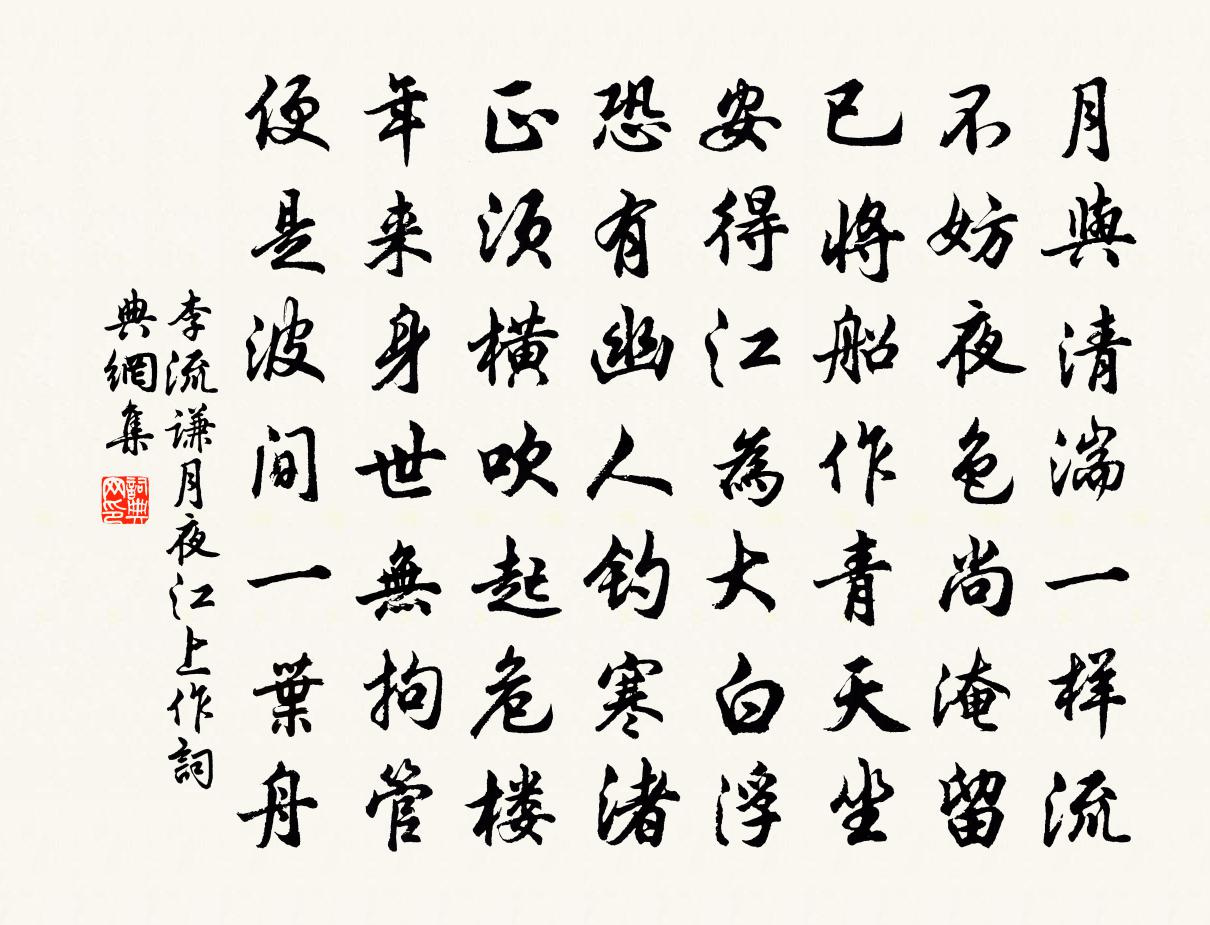 月與清湍一样流
不妨夜色尚淹留
已将船作青天坐
安得江為大白浮
恐有幽人钓寒渚
正须横吹起危楼
年来身世無拘管
便是波间一葉舟
李流谦月夜江上作詞
典網集
詞典网印